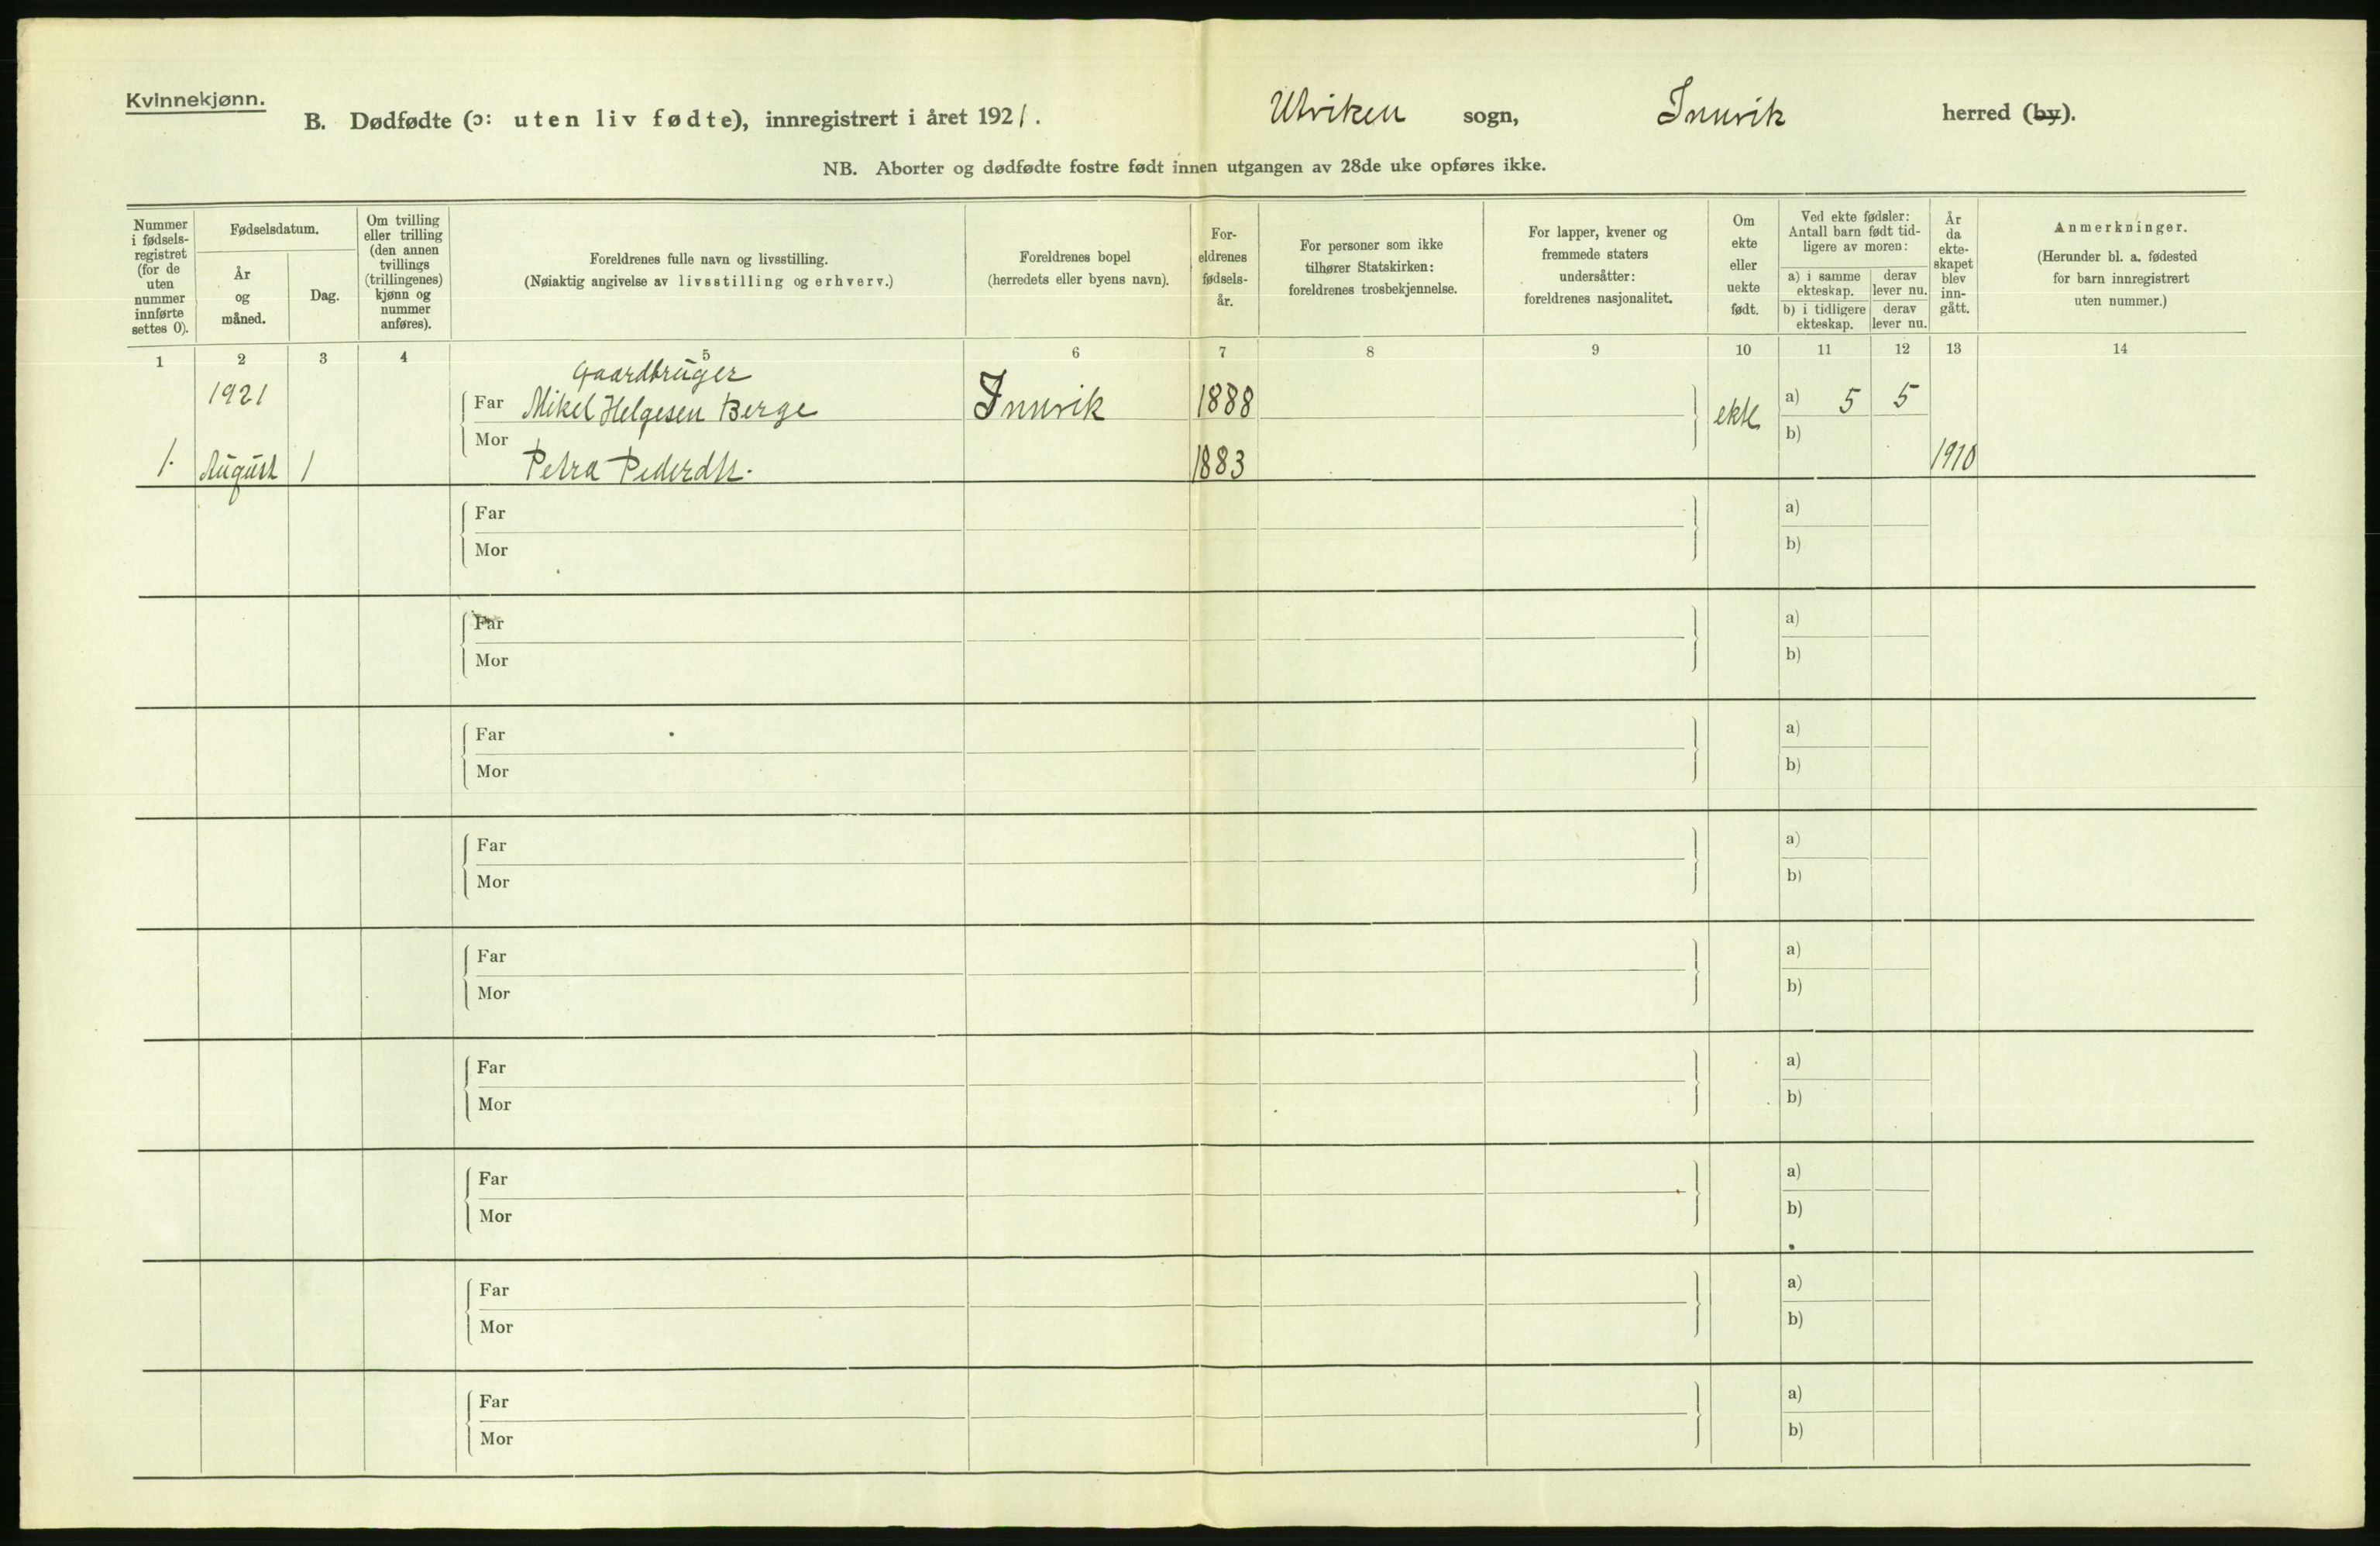 Kvinnekjønn.
B. Dødfødte (ɔ: uten liv fødte), innregistrert i året 1921. Utviken sogn, Innvik herred (by).
NB. Aborter og dødfødte fostre født innen utgangen av 28de uke opføres ikke.
Nummer
i fødsels-
registret
(for de
uten
nummer
innførte
settes 0).
Fødselsdatum.
År
og
måned.
Dag.
Om tvilling
eller trilling
(den annen
tvillings
(trillingenes)
kjønn og
nummer
anføres).
Foreldrenes fulle navn og livsstilling.
(Nøiaktig angivelse av livsstilling og erhverv.)
Foreldrenes bopel
(herredets eller byens navn).
For-
eldrenes
fødsels-
år.
For personer som ikke
tilhører Statskirken:
foreldrenes trosbekjennelse.
For lapper, kvener og
fremmede staters
undersåtter:
foreldrenes nasjonalitet.
Om
ekte
eller
uekte
født.
Ved ekte fødsler:
Antall barn født tid-
ligere av moren:
a) i samme
ekteskap.
derav
lever nu.
b) i tidligere
ekteskap.
derav
lever nu.
År
da
ekte-
skapet
blev
inn-
gått.
Anmerkninger.
(Herunder bl. a. fødested
for barn innregistrert
uten nummer.)
1 2 3 4 5 6 7 8 9 10 11 12 13 14
Gaardbruger
1921 Far Mikel Helgesen Berge Innvik 1888 ekte a) 5 5
Mor b)
1. August 1 Petra Pedersdtr. 1883 1910
Far a)
Mor b)
Far a)
Mor b)
Far a)
Mor b)
Far a)
Mor b)
Far a)
Mor b)
Far a)
Mor b)
Far a)
Mor b)
Far a)
Mor b)
Far a)
Mor b)